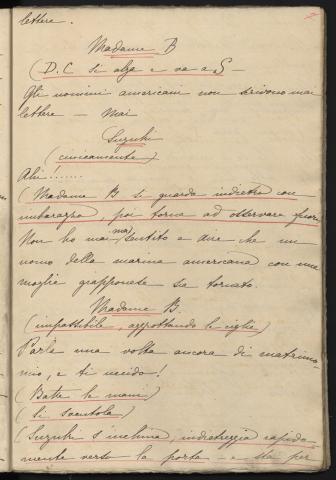 lettere.
Madame B
(D.C si alza e va a S—
Gli uomini americani non scrivono mai
lettere — Mai
Suzuki
(cinicamente)
Ahi!.......
(Madame B si guarda indietro con
imbarazzo, poi torna ad osservare fuori
Non ho mai sentito a dire che un
uomo della marina americana con una
moglie giapponese sia tornato.
Madame B.
(impassibile, aggrottando le ciglia)
Parla una volta ancora di matrimo-
nio, e ti uccido!
(Batte le mani)
(Si
(Suzuki s'inchina, indietreggia rapida-
mente verso la porta — e sta per